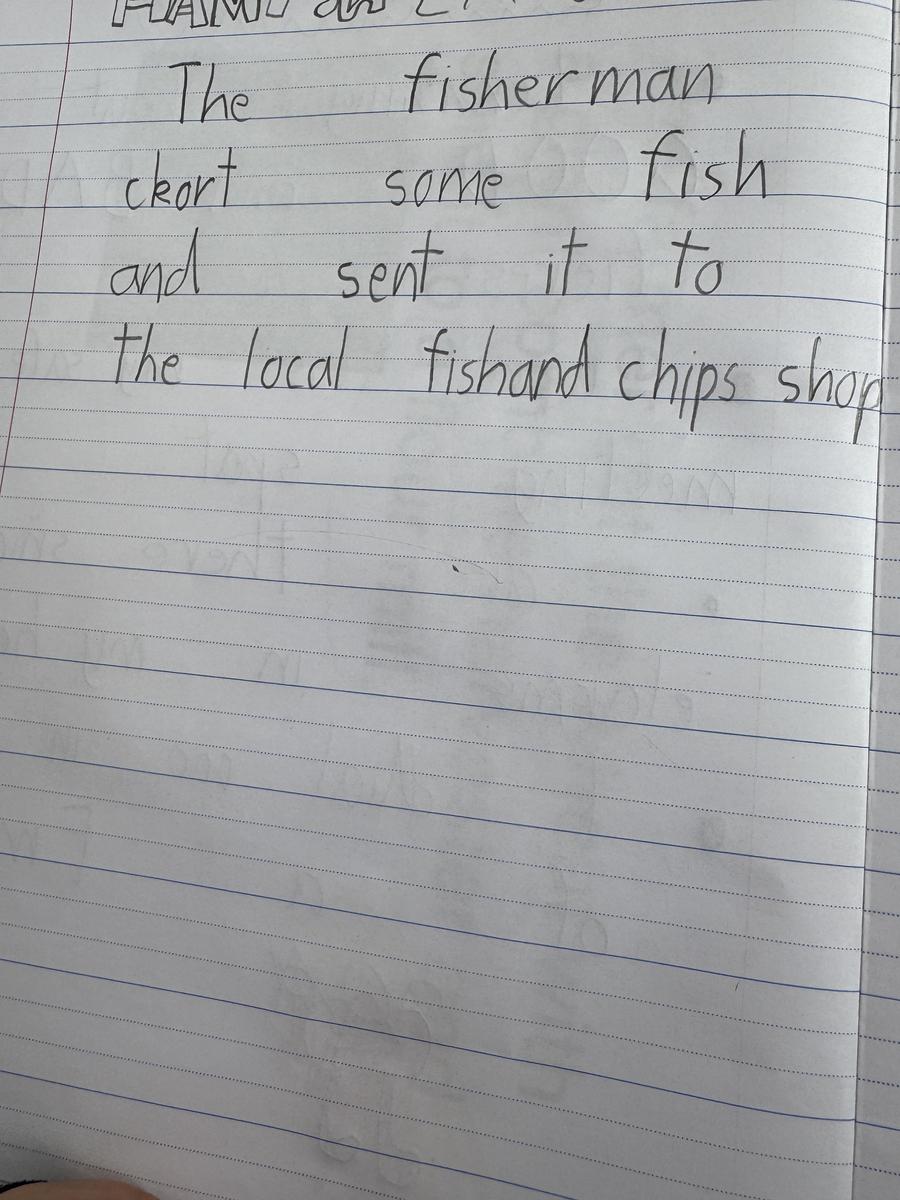 The fisherman
ckort some fish
and sent it to
the local fishand chips shop